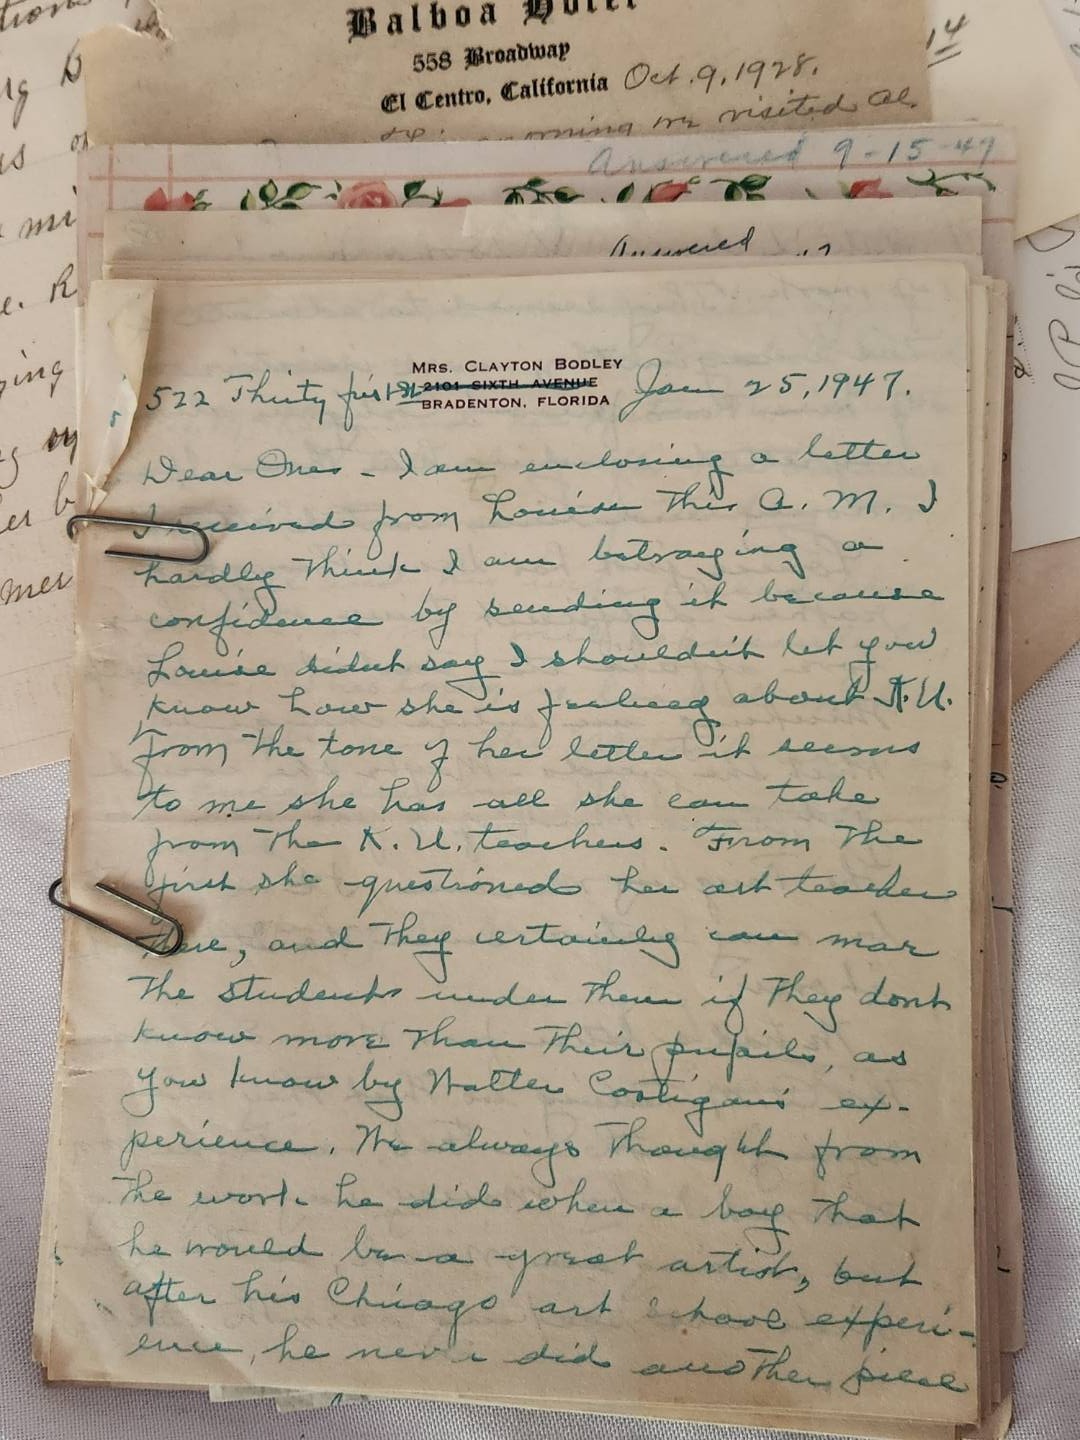 Balboa Hotel
558 Broadway
El Centro, California Oct. 9, 1928.
morning we visited
14
Answered 9-15-47
Answered
Mrs. Clayton Bodley
2101 Sixth Avenue
522 Thirty first St
Bradenton, Florida
Jan 25, 1947.
Dear Ones - I am enclosing a letter
I received from Louise this A. M. I
hardly think I am betraying a
confidence by sending it because
Louise didnt say I shouldn't let you
know how she is feeling about K. U.
From the tone of her letter it seems
to me she has all she can take
from the K. U. teachers. From the
first she questioned her art teacher
there, and they certainly can mar
the students under them if they dont
know more than their pupils, as
you know by Walter Costigan's ex-
perience. We always thought from
the work he did when a boy that
he would be a great artist, but
after his Chicago art school experi-
ence, he never did another piece